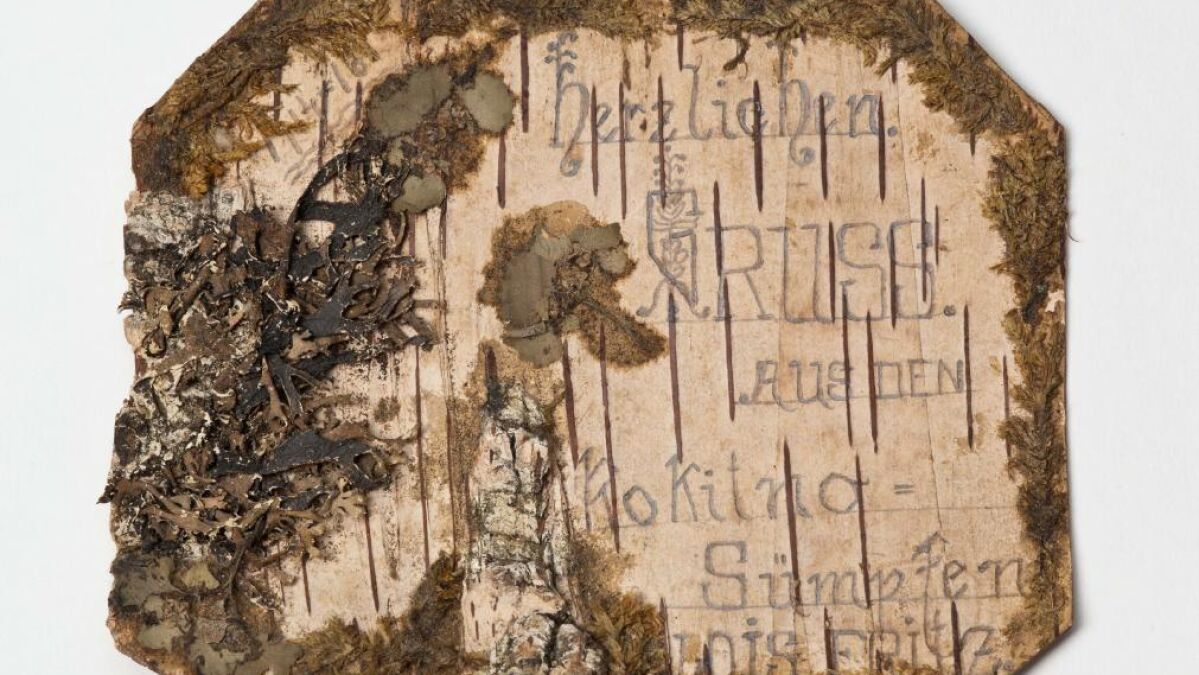 Herzlichen.
GRUSS.
AUS DEN
RoKitna =
Sümpfen
LOIS FRITZ.